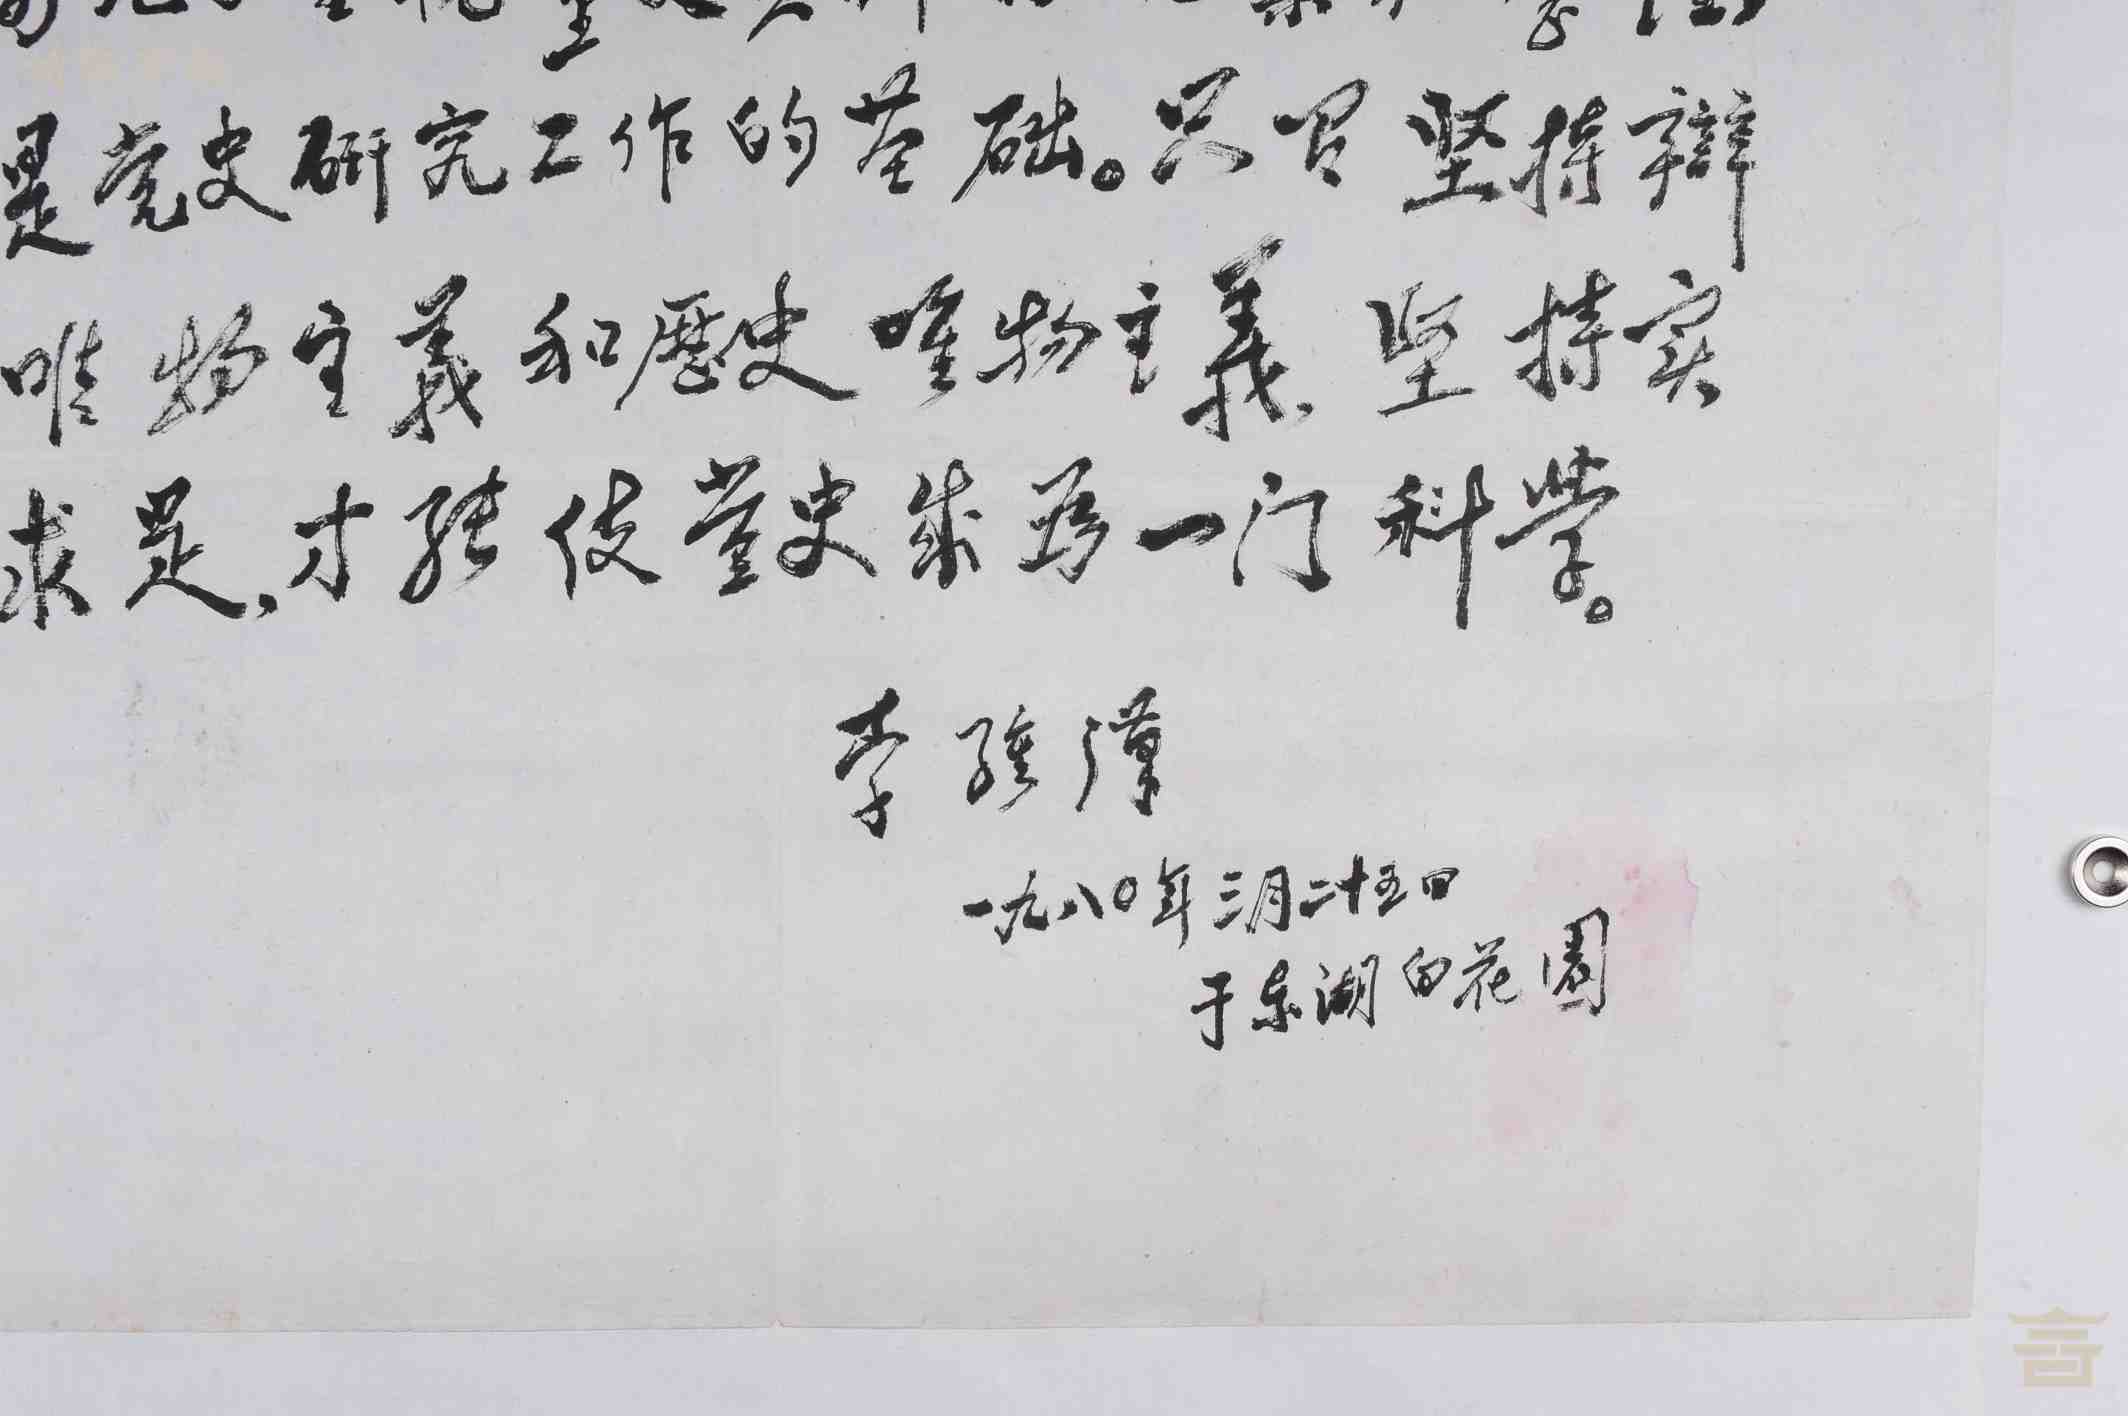 是党史研究工作的基础。只有坚持辯
唯物主義和歷史唯物主義、坚持实
求是、才能使党史成為一门科学。
李維漢
一九八〇年三月二十五日
于东湖百花園